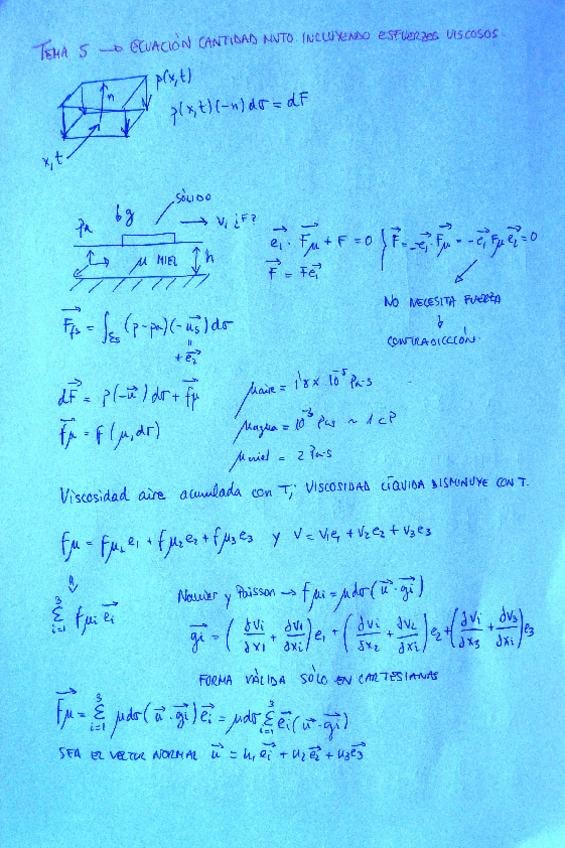 TEMA 5 → ECUACIÓN CANTIDAD MVTO. INCLUYENDO ESFUERZOS VISCOSOS.
p(x,t)
n
p(x,t)(-n)dσ = dF
x,t
SÓLIDO
pa bg → V, ¿F?
μ MIEL h
e₁ · Fμ + F = 0 } F = -e₁ · Fμ = -e₁ Fμ e₂ = 0
F = Fe₁
NO NECESITA FUERZA
↓
CONTRADICCIÓN
Ffs = ∫Σs (p - pa)(-ns) dσ
"
+ e₂
dF = p(-n) dσ + fμ
fμ = f(μ, dσ)
μaire = 1'8 × 10⁻⁵ Pa·s
μagua = 10⁻³ Pa·s ~ 1 cP
μmiel = 2 Pa·s
Viscosidad aire acumulada con T; VISCOSIDAD LÍQUIDA DISMINUYE CON T.
fμ = fμ₁e₁ + fμ₂e₂ + fμ₃e₃ y V = V₁e₁ + V₂e₂ + V₃e₃
Σ³ᵢ₌₁ fμi eᵢ
Navier y Poisson → fμi = μdσ(n · gi)
gi = (∂vi/∂x1 + ∂v1/∂xi) e₁ + (∂vi/∂x2 + ∂v2/∂xi) e₂ + (∂vi/∂x3 + ∂v3/∂xi) e₃
FORMA VÁLIDA SÓLO EN CARTESIANAS
Fμ = Σ³ᵢ₌₁ μdσ(n · gi) eᵢ = μdσ Σ³ᵢ₌₁ eᵢ(n · gi)
SEA EL VECTOR NORMAL n = n₁e₁ + n₂e₂ + n₃e₃